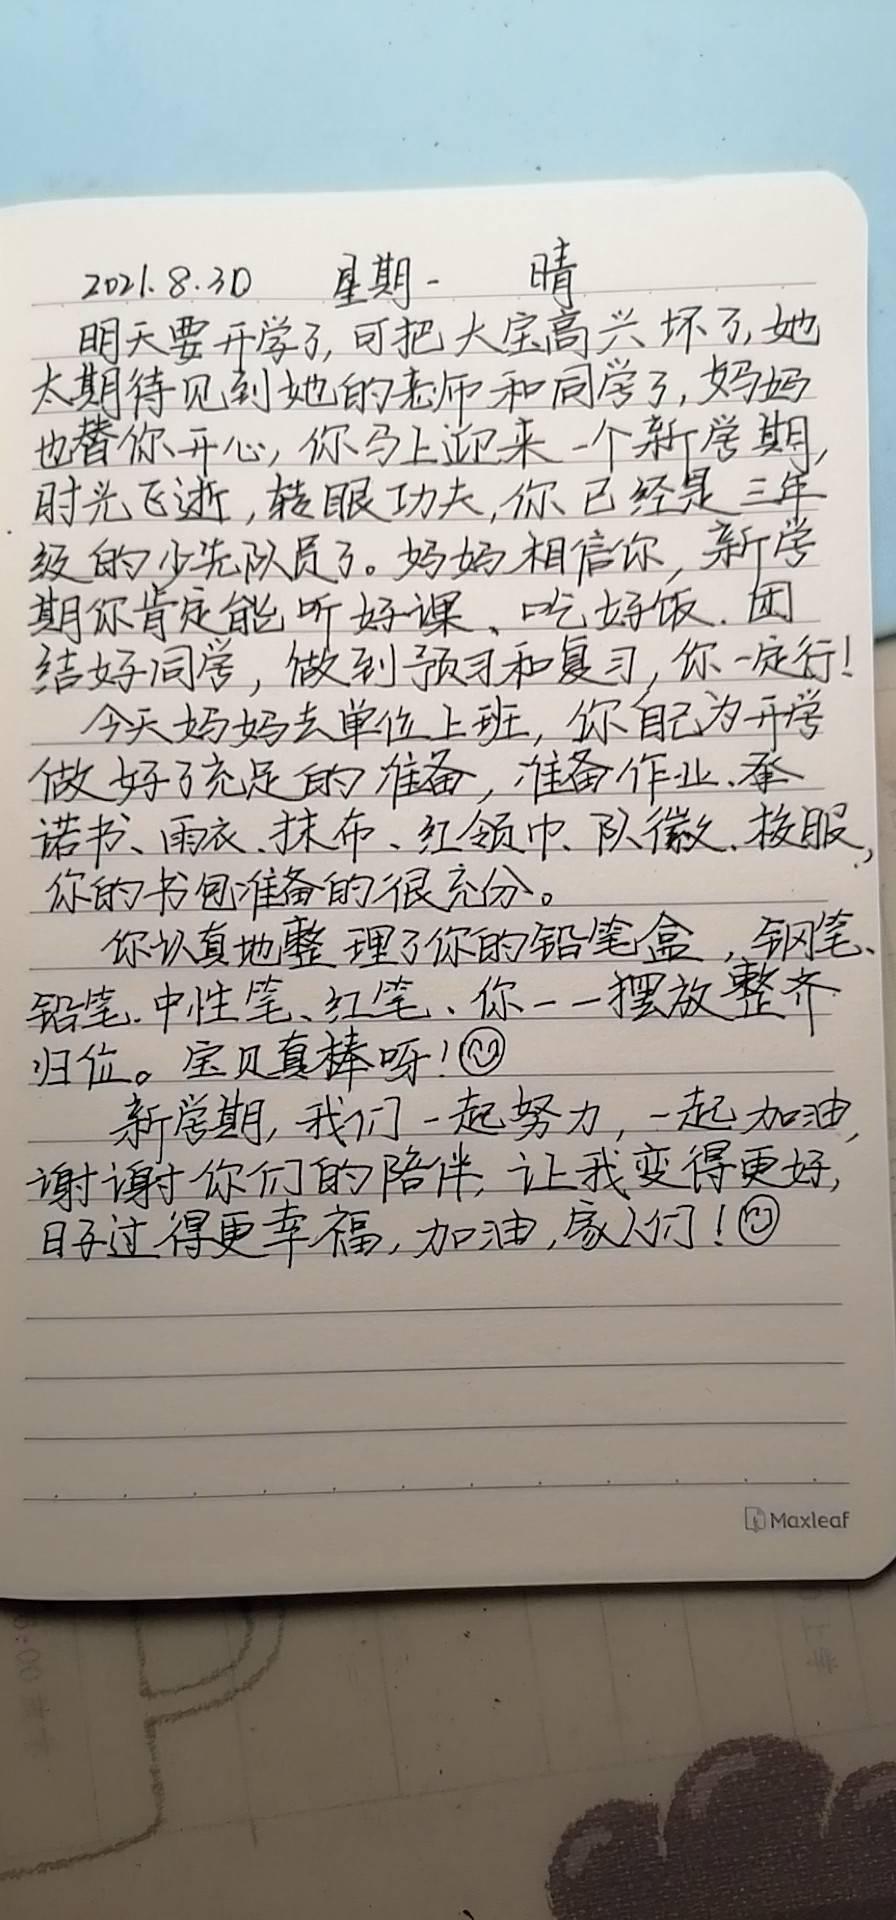 2021.8.30 星期一 晴
明天要开学了,可把大宝高兴坏了,她
太期待见到她的老师和同学了,妈妈
也替你开心,你马上迎来一个新学期,
时光飞逝,转眼功夫,你已经是三年
级的少先队员了。妈妈相信你,新学
期你肯定能听好课、吃好饭、团
结好同学,做到预习和复习,你一定行!
今天妈妈去单位上班,你自己为开学
做好了充足的准备,准备作业、承
诺书、雨衣、抹布、红领巾、队徽、校服,
你的书包准备的很充分。
你认真地整理了你的铅笔盒,钢笔、
铅笔、中性笔、红笔、你一一摆放整齐
归位。宝贝真棒呀!
新学期,我们一起努力,一起加油,
谢谢你们的陪伴,让我变得更好,
日子过得更幸福,加油,家人们!
Maxleaf